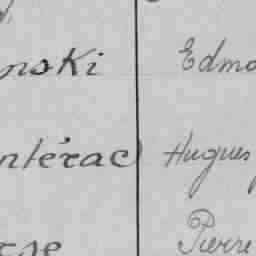 nski Edmo
ntérac Hugues
rse Pierre